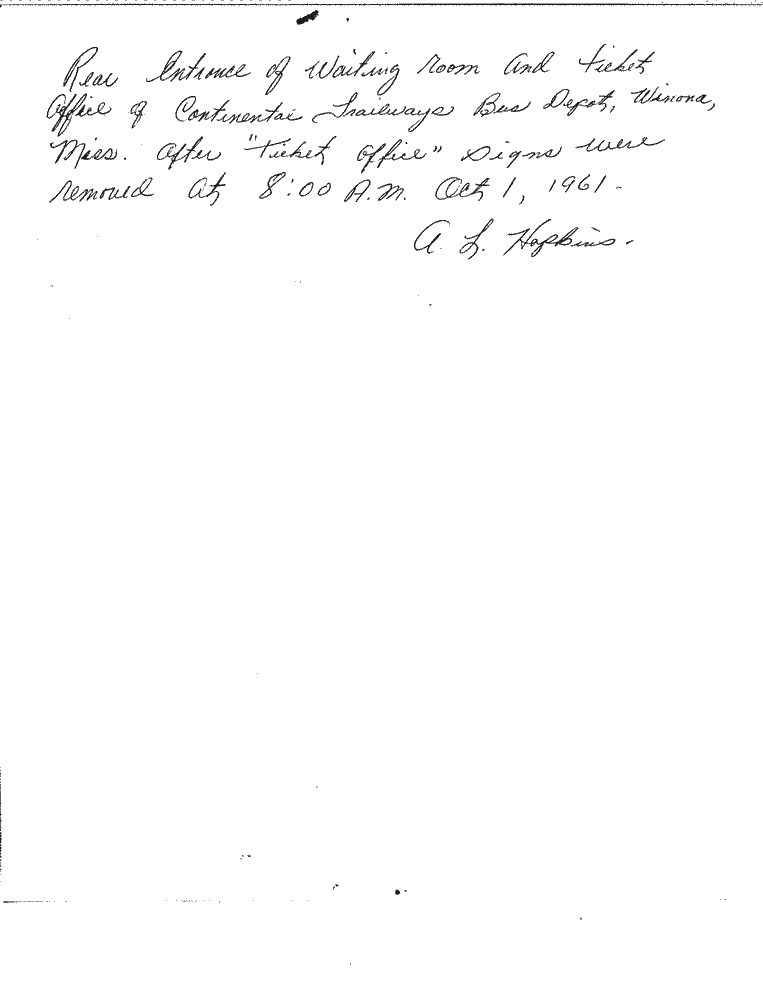 Rear Entrance of Waiting room and ticket
office of Continental Trailways Bus Depot, Winona,
Miss. after "Ticket office" signs were
removed at 8:00 A.M. Oct 1, 1961.
A. L. Hopkins.